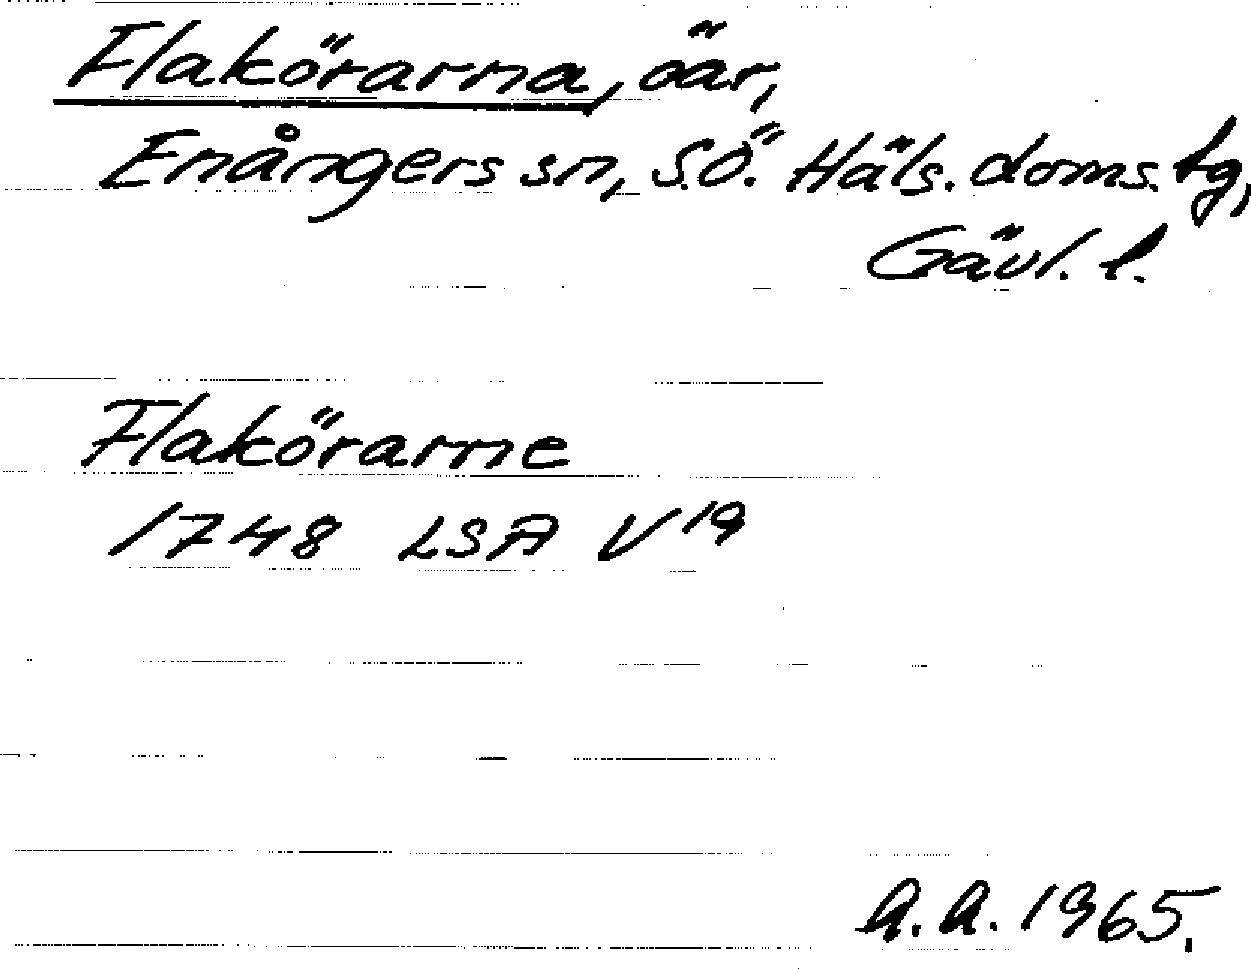 Flakörarna, öar,
Enångers sn, S.Ö. Häls. doms. tg,
Gävl. l.
Flakörarne
1748 LSA V¹⁹
A.A. 1965.